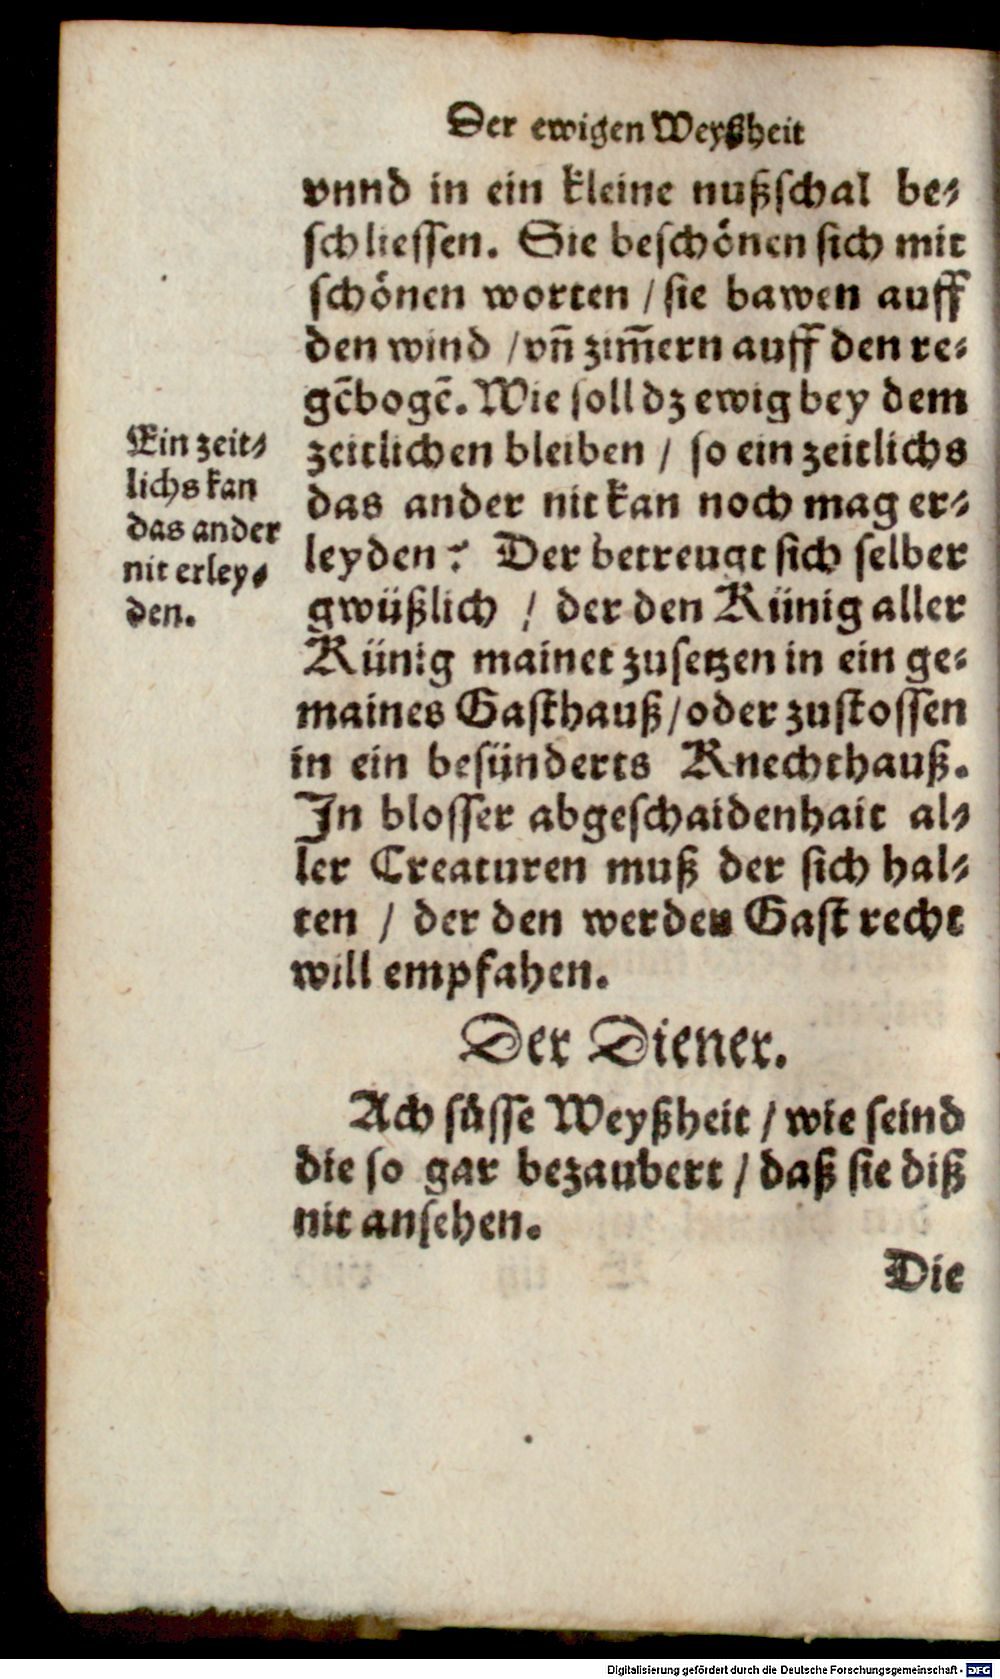 Der ewigen Weyßheit
vnnd in ein kleine nußschal be⸗
schliessen. Sie beschönen sich mit
schönen worten / sie bawen auff
den wind / vñ zim̃ern auff den re⸗
gẽbogẽ. Wie soll dz ewig bey dem
zeitlichen bleiben / so ein zeitlichs
das ander nit kan noch mag er⸗
leyden? Der betreugt sich selber
gwüßlich / der den Künig aller
Künig mainet zusetzen in ein ge⸗
maines Gasthauß / oder zustossen
in ein besünderts Knechthauß.
In blosser abgeschaidenhait al⸗
ler Creaturen muß der sich hal⸗
ten / der den werden Gast recht
will empfahen.
Ein zeit⸗
lichs kan
das ander
nit erley⸗
den.
Der Diener.
Ach süsse Weyßheit / wie seind
die so gar bezaubert / daß sie diß
nit ansehen.
Die
Digitalisierung gefördert durch die Deutsche Forschungsgemeinschaft - DFG